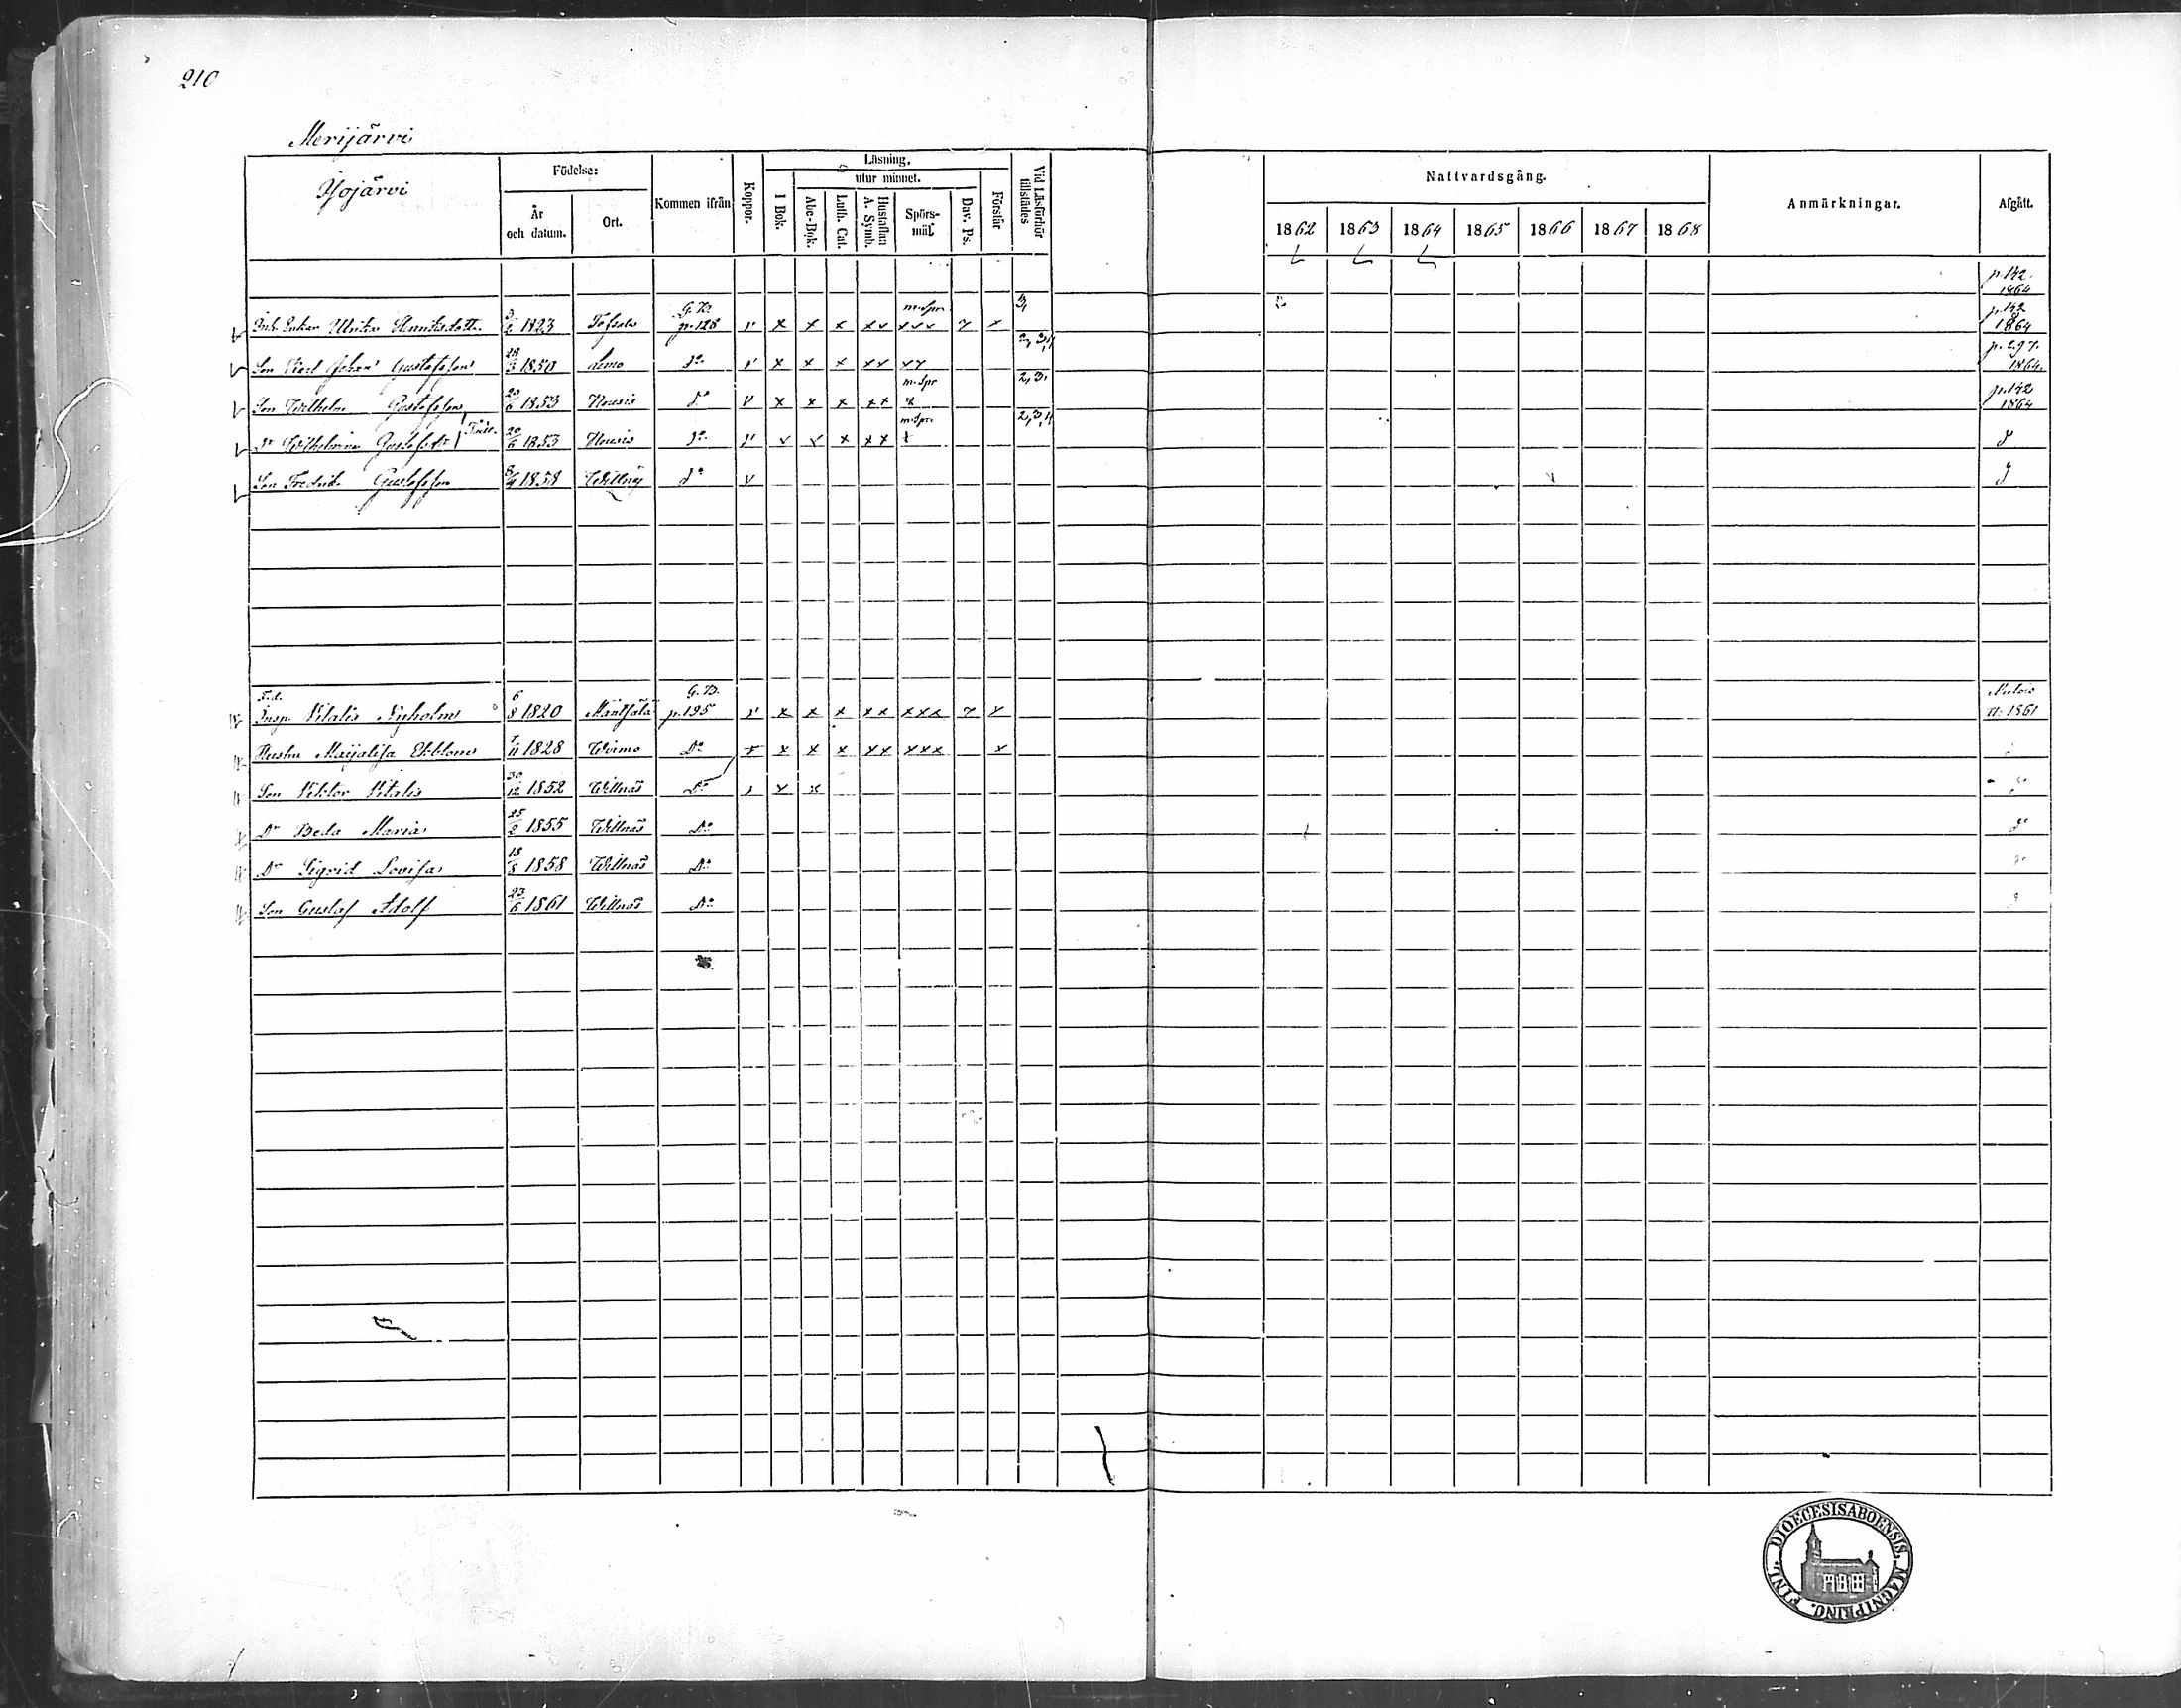 210
Merijärvi
Isojärvi
Födelse:
År och datum.
Ort.
Kommen ifrån
Koppor.
Läsning,
utur minnet.
I Bok.
Abc-Bok.
Luth. Cat.
Hustaflan A. Symb.
Spörsmål.
Dav. Ps.
Förstår
Vid Läsförhör tillstädes
Nattvardsgång.
1862 1863 1864 1865 1866 1867 1868
Anmärkningar.
Afgått.
p. 142. 1864
Inh. Enkan Ulrika 3/2 1823 G. B. p. 128 v x x x xx m. Spr. xxx 7 x 3, p. 142 1864
Son Karl Johan Gustafsson 28/3 1850 Lemo Do v x x x xx xx 2, 3, 4 p. 297. 1864.
Son Wilhelm Gustafsson 20/6 1853 Nousis Do v x x x xx m. Spr x 2, 3. p. 142 1864
Dr Wilhelmina Gustafsdr Tvill. 20/6 1853 Nousis Do v v v x xx m. Spr. x 2, 3, 4 d
Son Fredrik Gustafsson 8/4 1858 Willnäs Do v d
F.d.
Insp. Vitalis Nyholm 6/8 1820 Mäntsälä G. B. p. 195 v x x x xx xxx 7 x 1861
Hustru Maijalisa Ekblom 11 1828 Wirmo Do x x x xx xxx x
Son Viktor Vitalis 30/12 1852 Willnäs Do v x x
Dr Beda Maria 25/2 1855 Willnäs Do do
Dr Sigrid Lovisa 18/8 1858 Willnäs Do
Son Gustaf Adolf 23/6 1861 Willnäs Do
DIOECESIS ABOENSIS. MAGNI PRINC. FINL.